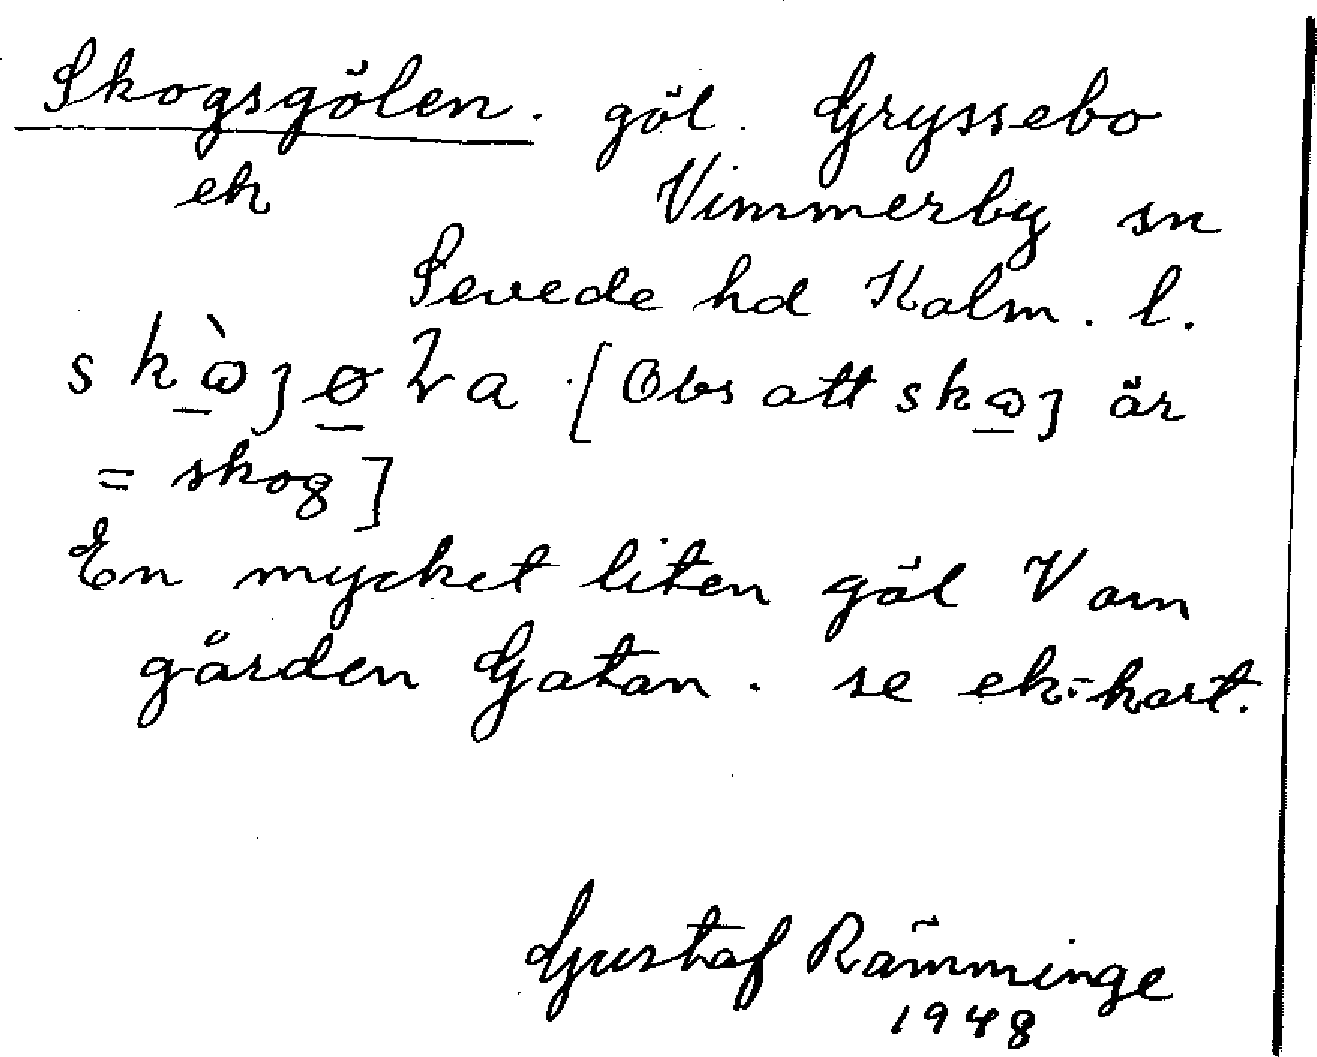 Skogsgölen. göl. Gryssebo
ek Vimmerby sn
Sevede hd Kalm. l.
[Obs att är
= skog]
En mycket liten göl V om
gården Gatan. se ek-kart.
Gustaf Rämminge
1948